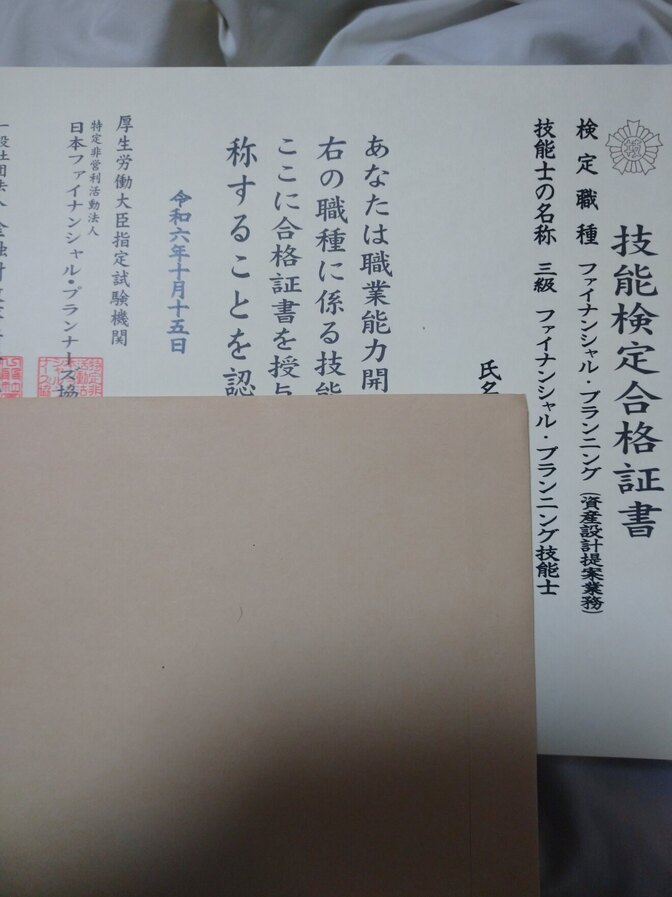 技能検定合格証書
検定職種 ファイナンシャル・プランニング(資産設計提案業務)
技能士の名称 三級 ファイナンシャル・プランニング技能士
氏名
あなたは職業能力開
右の職種に係る技能
ここに合格証書を授与
称することを認
令和六年十月十五日
厚生労働大臣指定試験機関
特定非営利活動法人
日本ファイナンシャル・プランナーズ協
一般社団法人 金融財政事